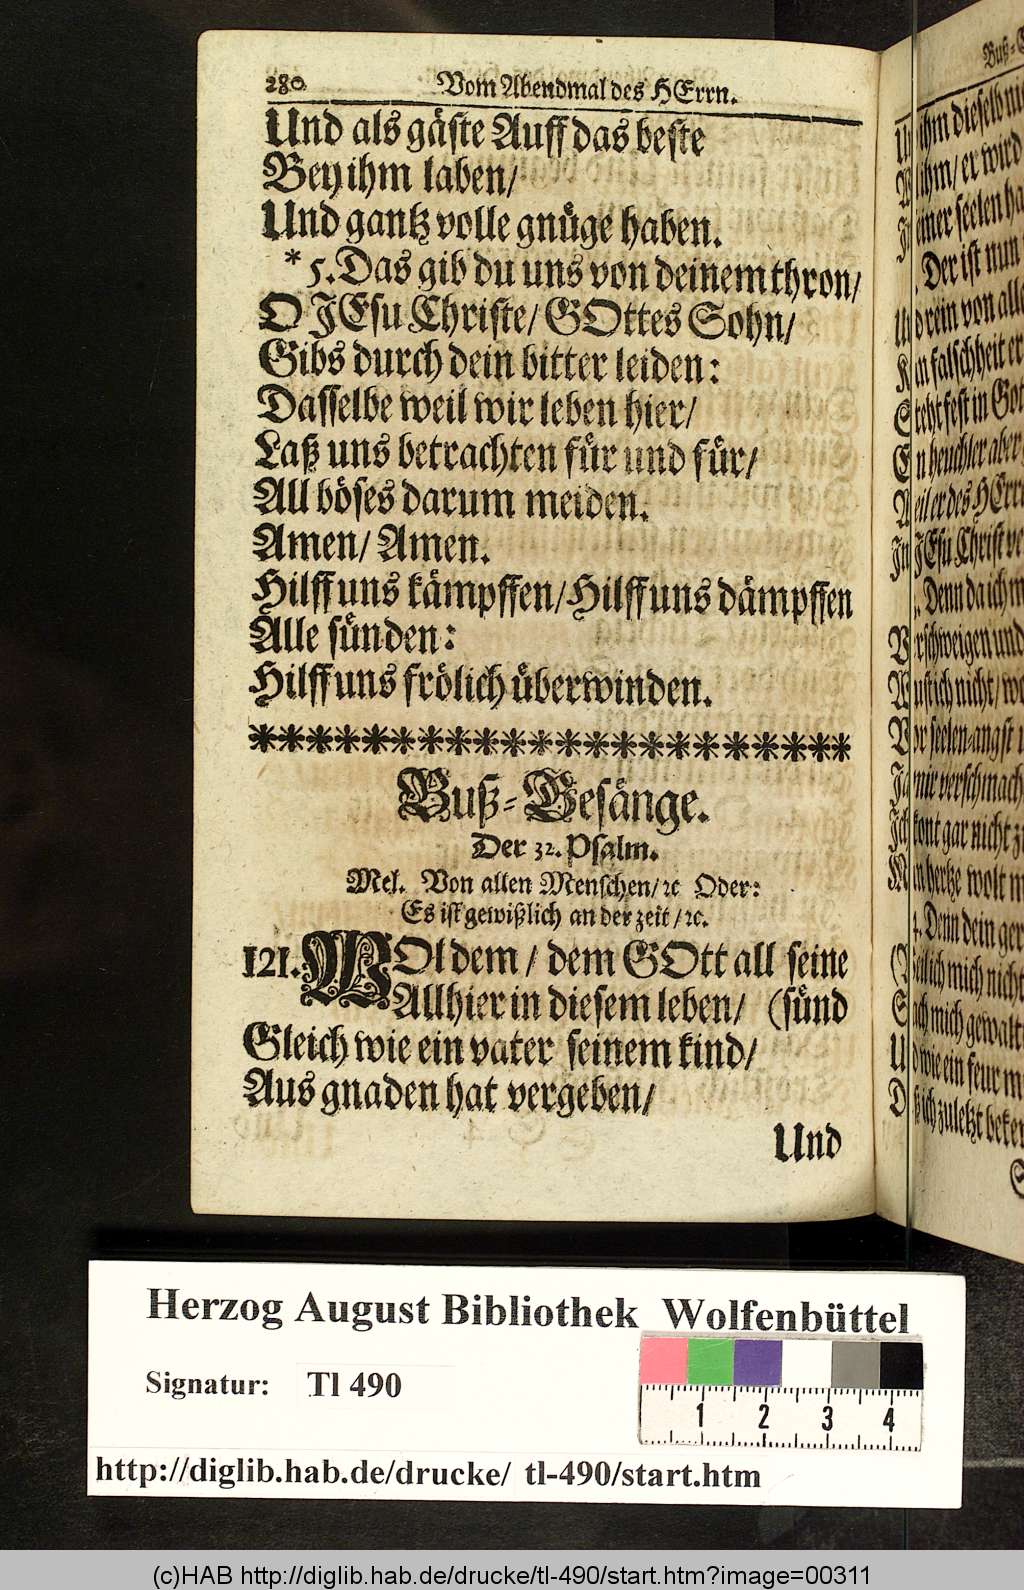 280. Vom Abendmal des HErrn.
Und als gäste Auff das beste
Bey ihm laben/
Und gantz volle gnüge haben.
* 5. Das gib du uns von deinem thron/
O JEsu Christe/ GOttes Sohn/
Gibs durch dein bitter leiden:
Dasselbe weil wir leben hier/
Laß uns betrachten für und für/
All böses darum meiden.
Amen/ Amen.
Hilff uns kämpffen/ Hilff uns dämpffen
Alle sünden:
Hilff uns frölich überwinden.
Buß-Gesänge.
Der 32. Psalm.
Mel. Von allen Menschen/ ꝛc Oder:
Es ist gewißlich an der zeit/ ꝛc.
121. WOl dem/ dem GOtt all seine
Allhier in diesem leben/ (sünd
Gleich wie ein vater seinem kind/
Aus gnaden hat vergeben/
Und
Buß-
ihm dieselb
ihm/ er wird
einer seelen
. Der ist nun
rein von
falschheit
steht fest in
n heuchler aber
weil er des HErrn
In JEsu Christ
. Denn da ich
verschweigen und
Wust ich nicht/
Vor seelen-angst
mir verschmach
Ich kont gar nicht
hertze wolt
4. Denn dein
mich nicht
mich gewalt
Und wie ein feur
Daß ich zuletzt
Herzog August Bibliothek Wolfenbüttel
Signatur: Tl 490
1 2 3 4
http://diglib.hab.de/drucke/ tl-490/start.htm
(c)HAB http://diglib.hab.de/drucke/tl-490/start.htm?image=00311